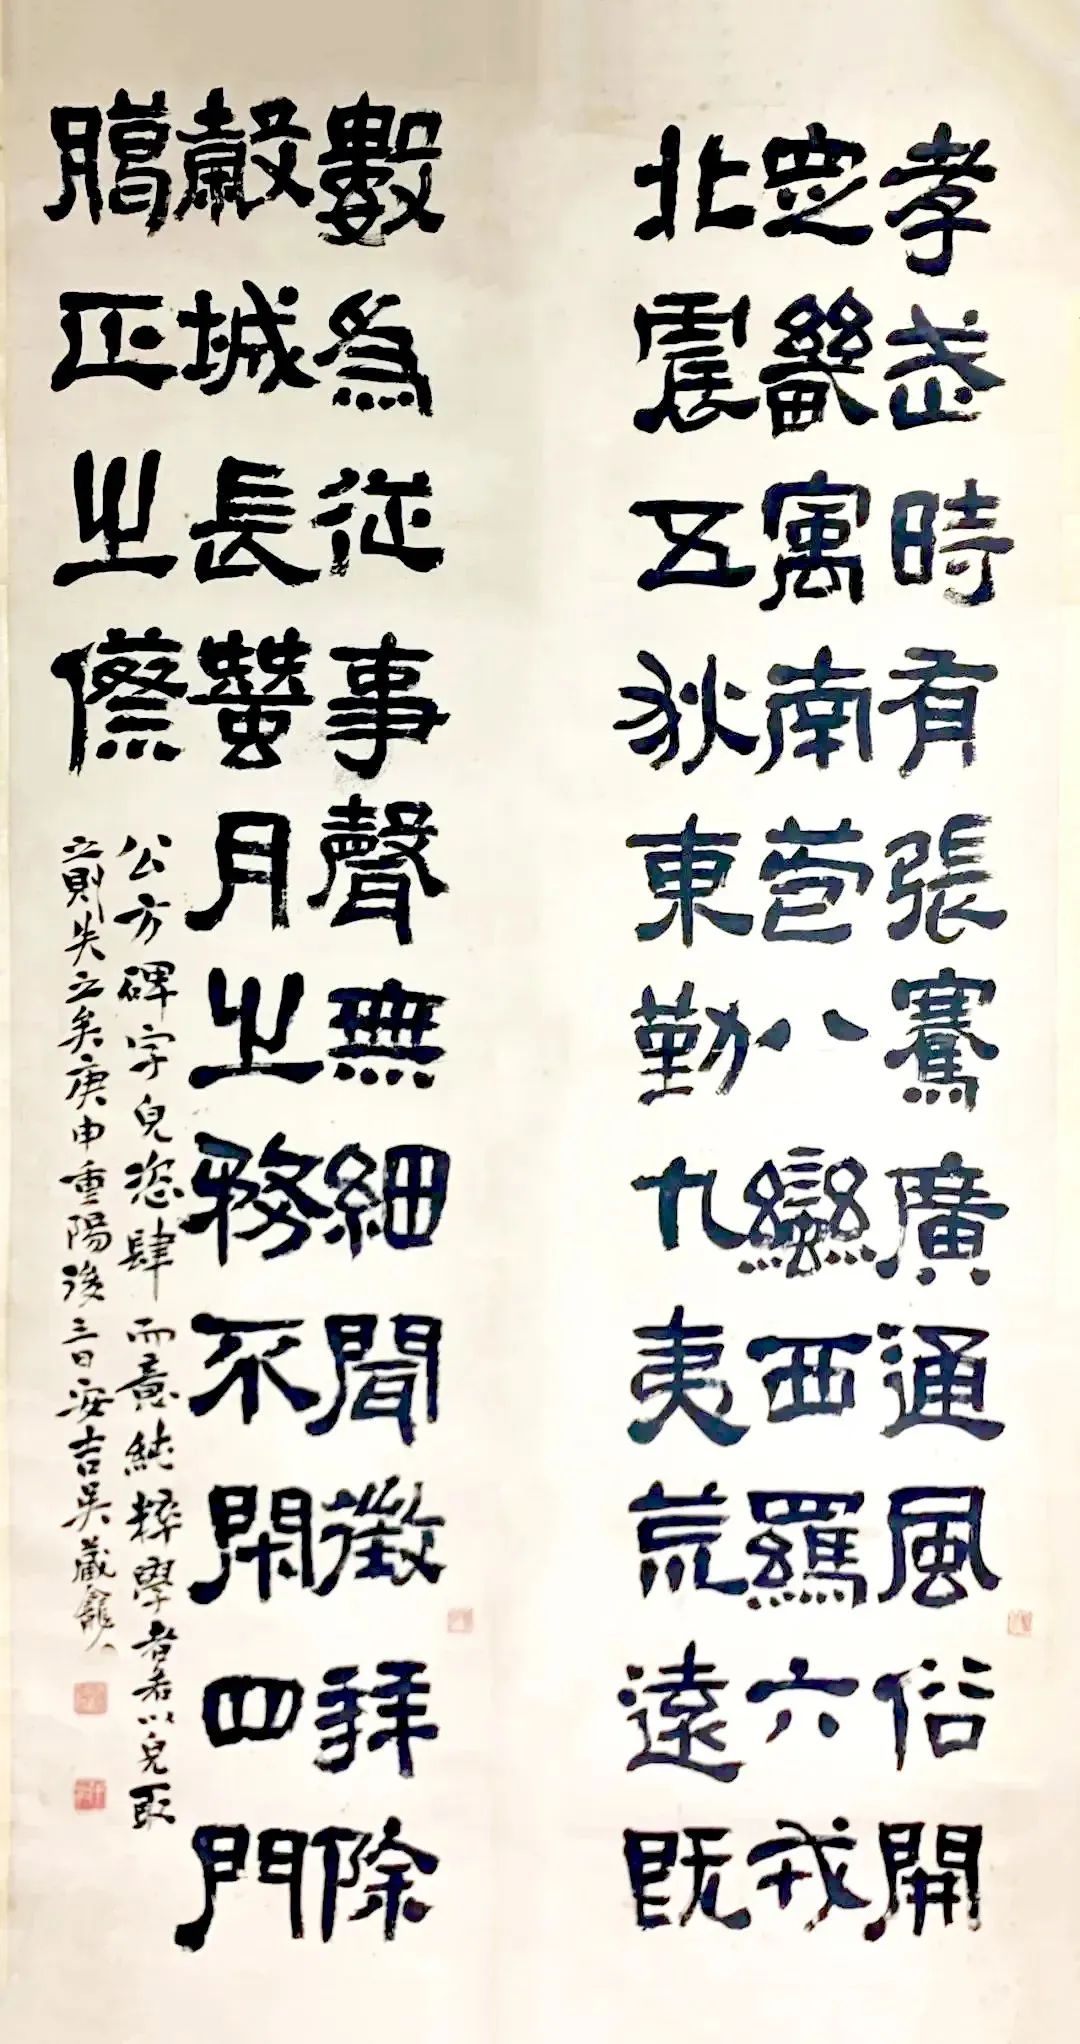 孝武時有張騫廣通風俗開
定畿寓南苞八蠻西羈六戎
北震五狄東勤九夷荒遠既
數為從事聲無細聞徵拜除
穀城長蠶月之務不閉四門
臘正之僚
公方碑字皃恣肆而意純粹學者若以皃取
之則失之矣庚申重陽後三日安吉吳藏龕